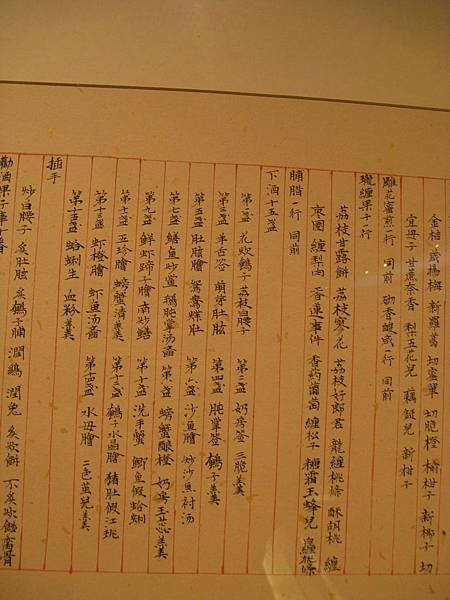 金桔 楊梅 新羅葛 切蜜蕈 切脆橙 榆柑子 新椰子 切
宜母子 甘蔗柰香 梨五花兒 藕鋌兒 新柑子
雕花蜜煎一行 同前 砌香酸咸一行 同前
瓏纏果子一行
荔枝甘露餅 荔枝蓼花 荔枝好郎君 龍纏桃條 酥胡桃 纏
棗圈 纏梨肉 香蓮事件 香药葡萄 纏松子 糖霜玉蜂兒
脯腊一行 同前
下酒十五盏
第一盏 花炊鵪子 荔枝白腰子 第二盏 奶房簽 三脆羹
第三盏 羊舌簽 萌芽肚胘 第四盏 肫掌簽 鵪子羹
第五盏 肚胘膾 鴛鴦煠肚 第六盏 沙魚膾 炒沙魚衬汤
第七盏 鳝魚炒鲎 鵝肫掌汤齑 第八盏 螃蟹酿橙 奶房玉蕊羹
第九盏 鮮虾蹄子膾 南炒鳝 第十盏 洗手蟹 鯽魚假蛤蜊
第十一盏 五珍膾 螃蟹清羹 第十二盏 鵪子水晶膾 豬肚假江珧
第十三盏 虾橙膾 虾魚汤齑 第十四盏 水母膾 二色茧兒羹
第十五盏 蛤蜊生 血粉羹
插手
炒白腰子 炙肚胘 炙鵪子脯 潤鷄 潤兔 炙炊餅
勸酒果子庫十番